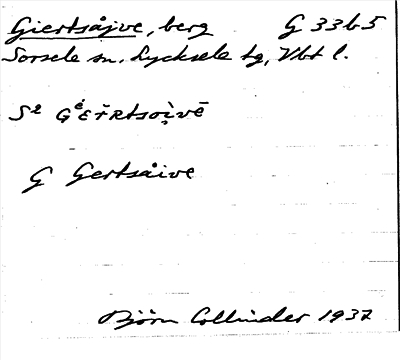 Giertsåjve, berg G 33b5
Sorsele sn. Lycksele tg, Vbt l.
S2
G Gertsåive
Björn Collinder 1937